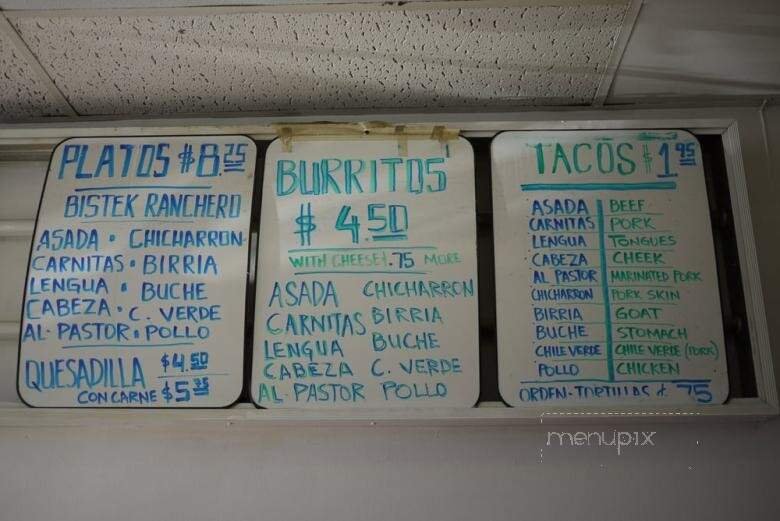 PLATOS $8.75
BISTEK RANCHERO
ASADA • CHICHARRON
CARNITAS • BIRRIA
LENGUA • BUCHE
CABEZA • C. VERDE
AL PASTOR • POLLO
QUESADILLA $4.50
CON CARNE $5.35
BURRITOS
$4.50
WITH CHEESE! .75 MORE
ASADA CHICHARRON
CARNITAS BIRRIA
LENGUA BUCHE
CABEZA C. VERDE
AL PASTOR POLLO
TACOS $1.95
ASADA BEEF
CARNITAS PORK
LENGUA TONGUES
CABEZA CHEEK
AL PASTOR MARINATED PORK
CHICHARRON PORK SKIN
BIRRIA GOAT
BUCHE STOMACH
CHILE VERDE CHILE VERDE (PORK)
POLLO CHICKEN
ORDEN-TORTILLAS ¢ 75
menupix